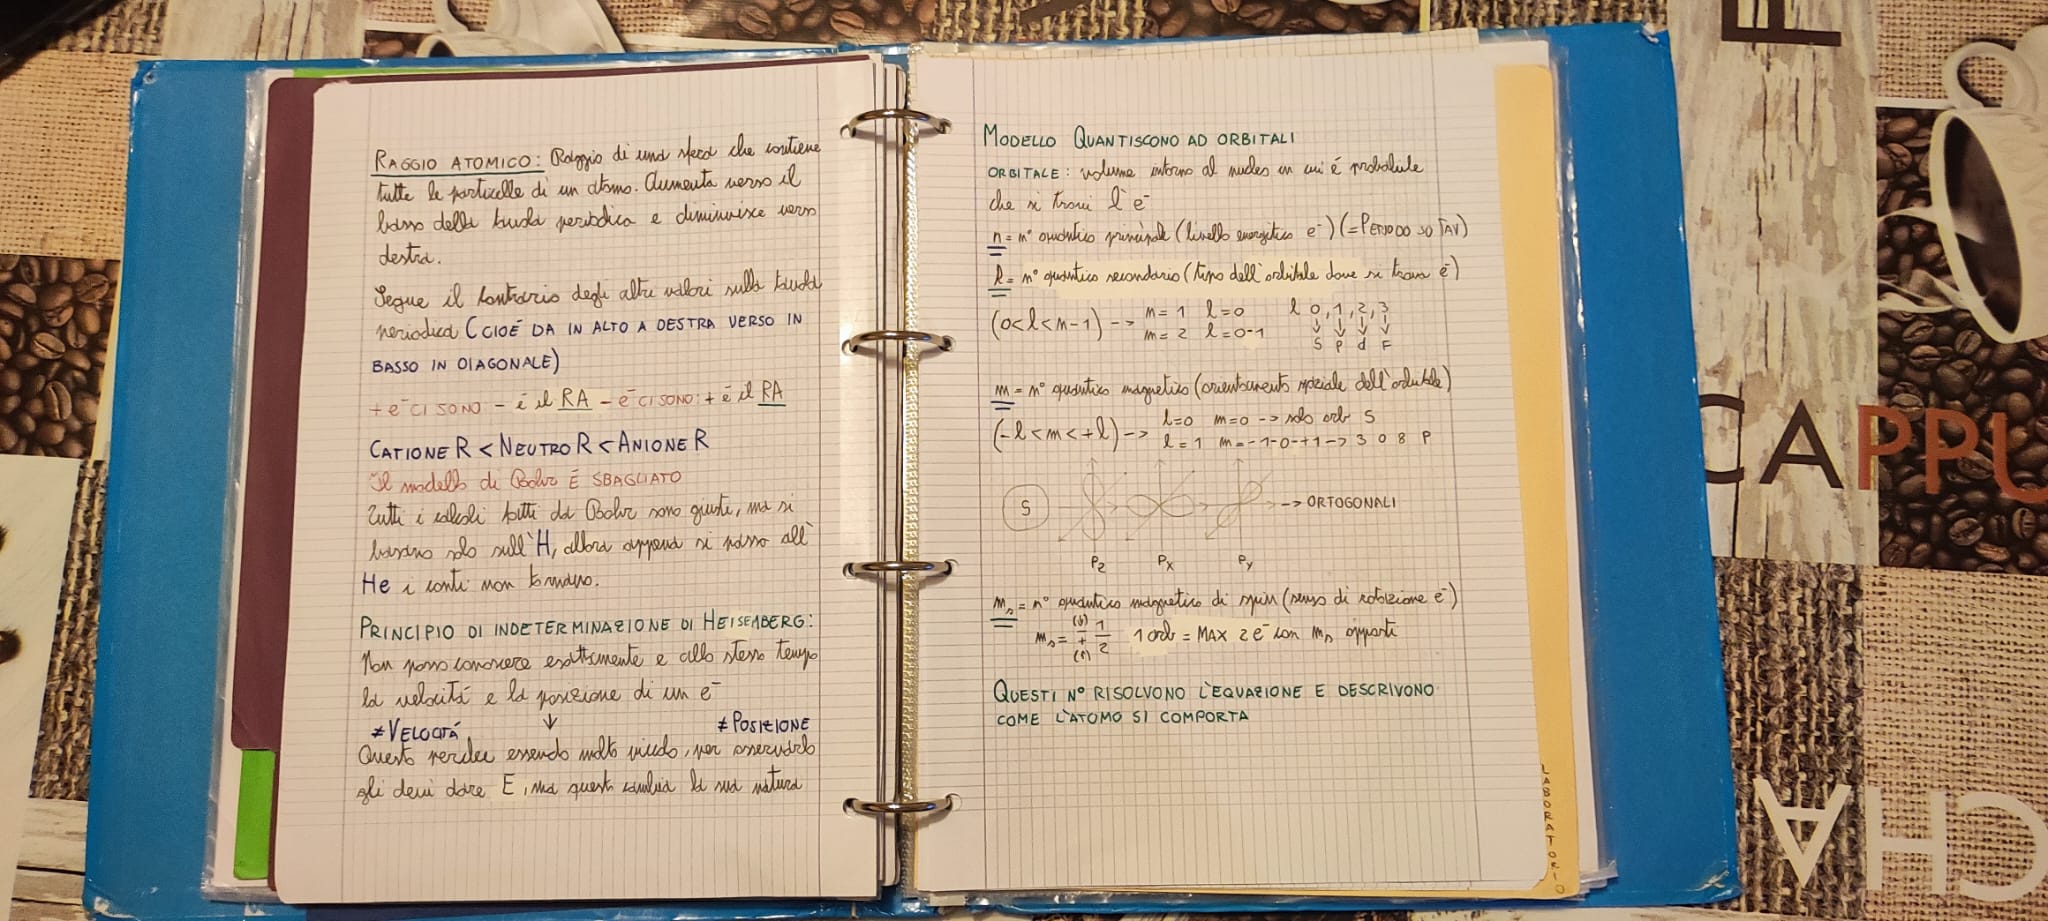 RAGGIO ATOMICO: Raggio di una sfera che contiene
tutte le particelle di un atomo. Aumenta verso il
basso della tavola periodica e diminuisce verso
destra.
Segue il contrario degli altri valori sulla tavola
periodica (CIOÉ DA IN ALTO A DESTRA VERSO IN
BASSO IN DIAGONALE)
+ e⁻ CI SONO - é il RA - e⁻ CI SONO: + é il RA
CATIONE R < NEUTRO R < ANIONE R
Il modello di Bohr É SBAGLIATO
Tutti i calcoli fatti da Bohr sono giusti, ma si
basano solo sull'H, allora appena si passa all'
He i conti non tornano.
PRINCIPIO DI INDETERMINAZIONE DI HEISEMBERG:
Non posso conoscere esattamente e allo stesso tempo
la velocitá e la posizione di un e⁻
≠VELOCITÁ ↓ ≠POSIZIONE
Questo perché essendo molto piccolo, per osservarlo
gli devi dare E, ma questo cambia la sua natura
MODELLO QUANTISCONO AD ORBITALI
ORBITALE: volume intorno al nucleo in cui é probabile
che si trovi l'e⁻
n = n° quantico principale (livello energetico e⁻) (=PERIODO SU TAV)
l = n° quantico secondario (tipo dell'orbitale dove si trova e⁻)
(0<l<n-1) --> n=1 l=0 l 0,1,2,3
n=2 l=0-1 ↓ ↓ ↓ ↓
S P d F
m = n° quantico magnetico (orientamento spaziale dell'orbitale)
(-l<m<+l) --> l=0 m=0 --> solo orb S
l=1 m=-1-0-+1-> 3 o 8 P
S --> ORTOGONALI
Pz Px Py
ms = n° quantico magnetico di spin (senso di rotazione e⁻)
(↓)
ms = ± 1/2 1 orb = MAX 2 e⁻ con ms opposti
(↑)
QUESTI N° RISOLVONO L'EQUAZIONE E DESCRIVONO
COME L'ATOMO SI COMPORTA
LABORATORIO
CAPPU
CHA